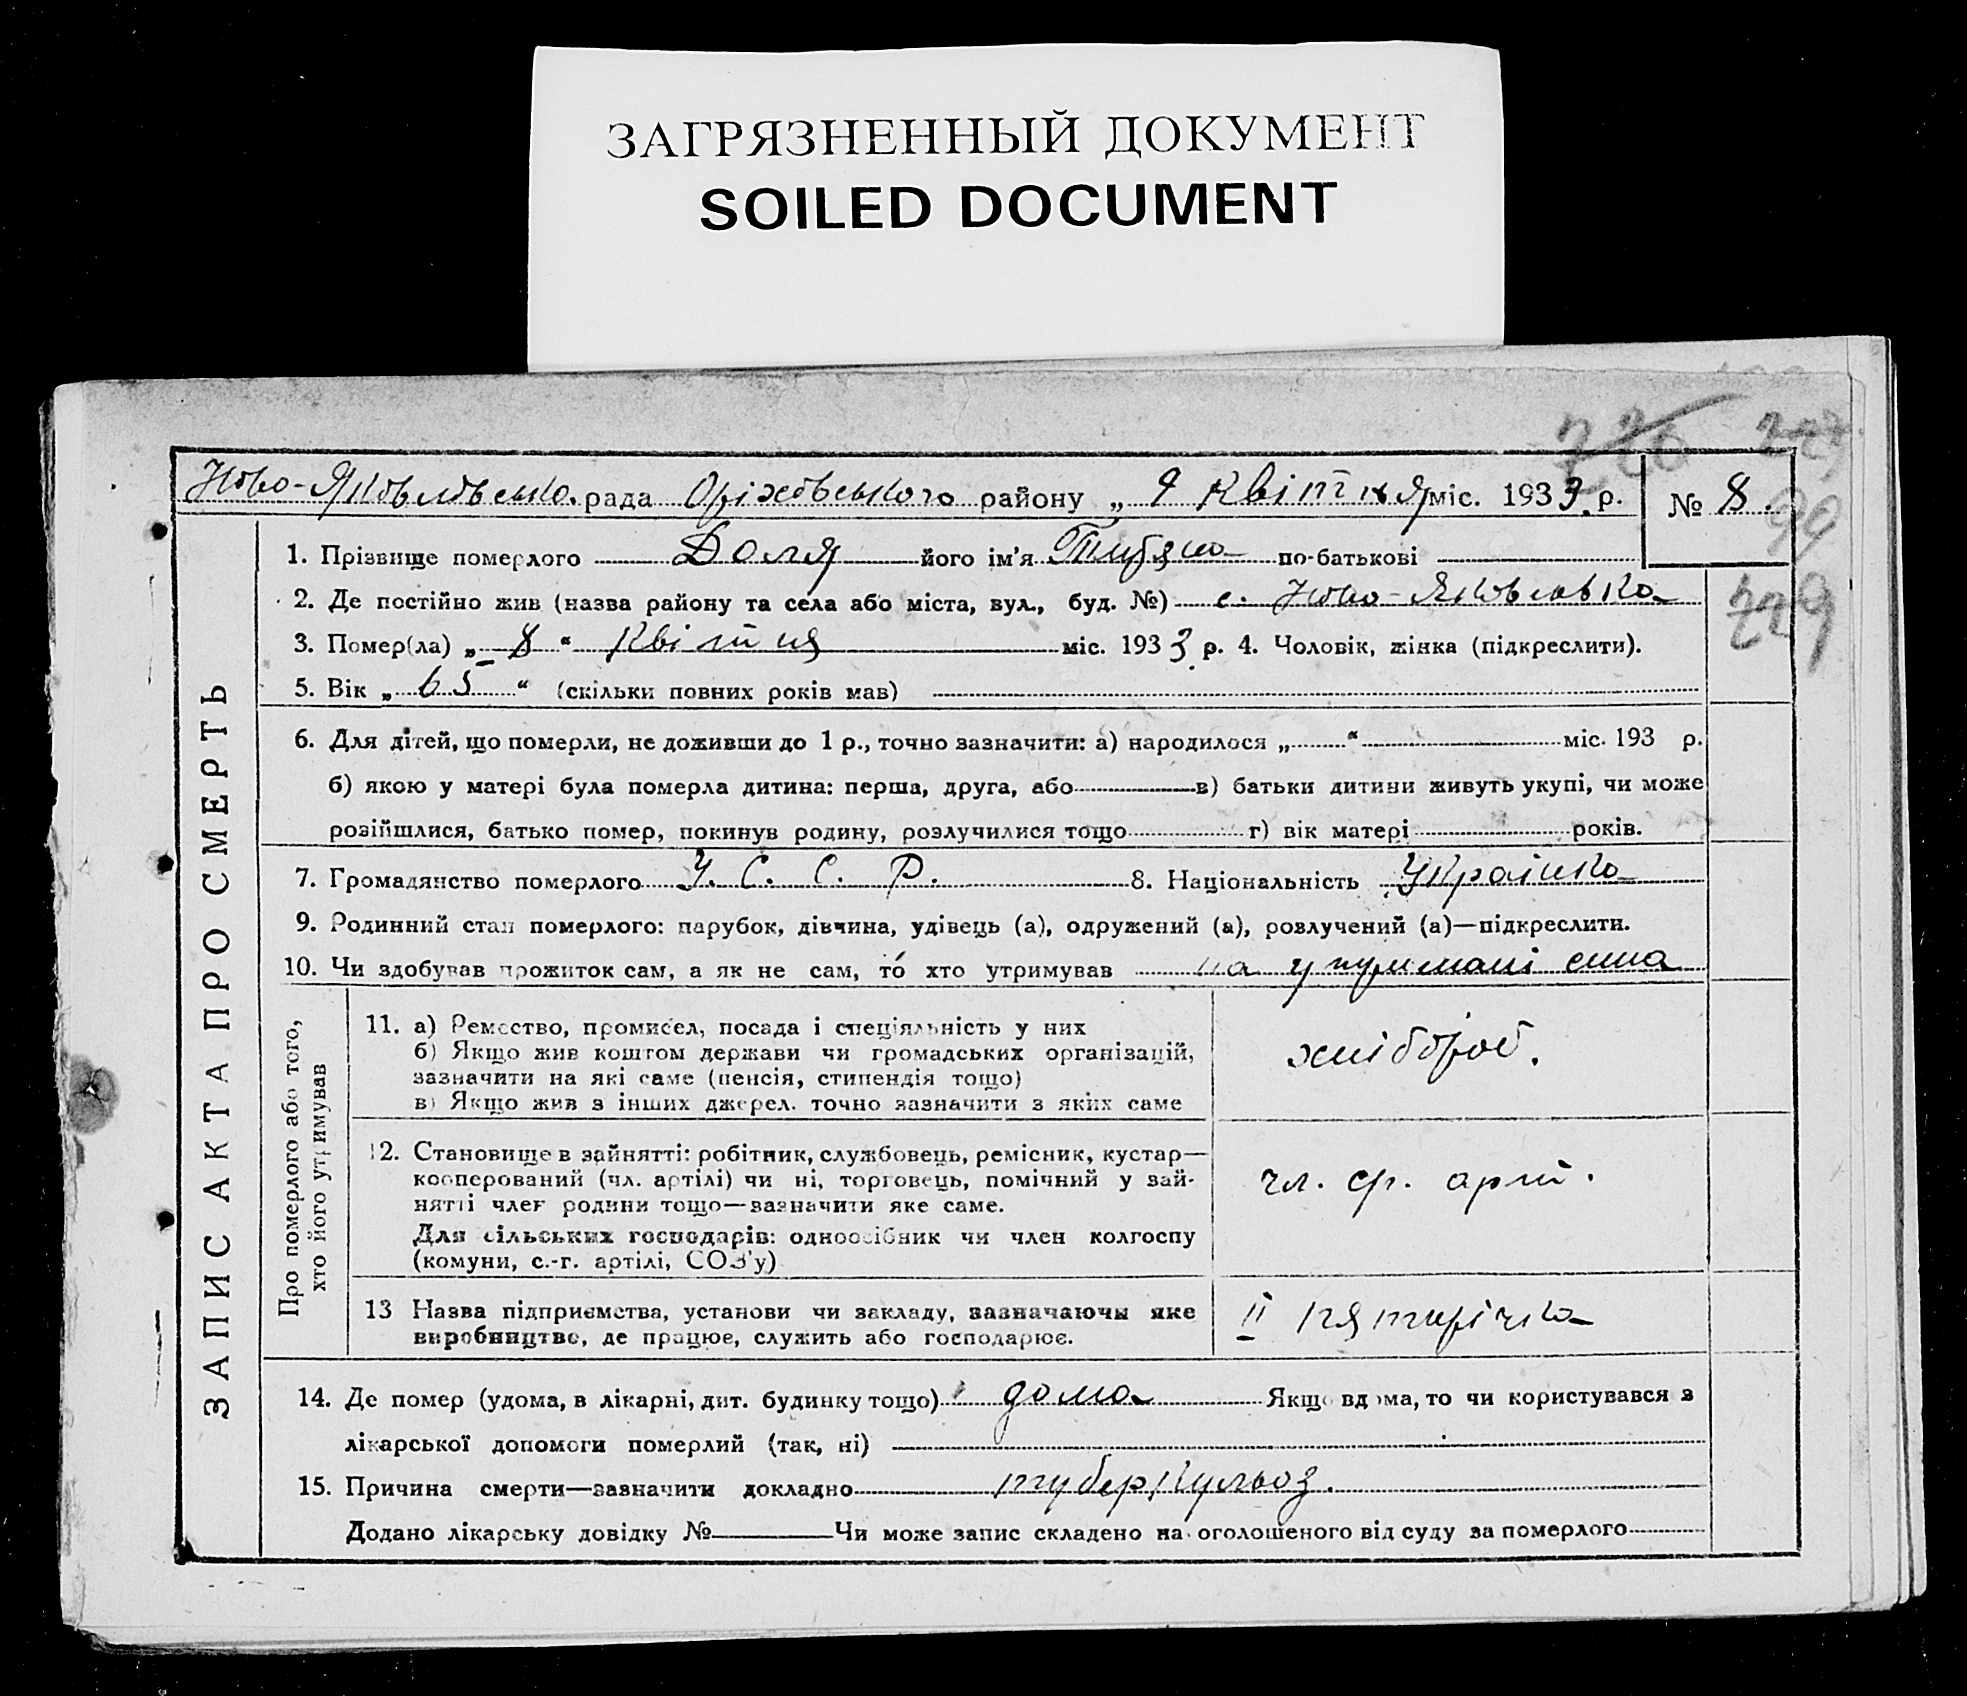 ЗАГРЯЗНЕННЫЙ ДОКУМЕНТ
SOILED DOCUMENT
226 227
Ново-Яковлівська рада Оріхівського району „ 9 Квітня міс. 1933 р. № 8.
99
229
ЗАПИС АКТА ПРО СМЕРТЬ
1. Прізвище померлого Доля його ім'я по-батькові
2. Де постійно жив (назва району та села або міста, вул., буд. №) с. Ново-Яковлівка
3. Помер(ла) „ 8 “ Квітня міс. 1933 р. 4. Чоловік, жінка (підкреслити).
5. Вік „ 65 “ (скільки повних років мав)
6. Для дітей, що померли, не доживши до 1 р., точно зазначити: а) народилося „ “ міс. 193 р.
б) якою у матері була померла дитина: перша, друга, або в) батьки дитини живуть укупі, чи може
розійшлися, батько помер, покинув родину, розлучилися тощо г) вік матері років.
7. Громадянство померлого У. С. С. Р. 8. Національність Українка
9. Родинний стан померлого: парубок, дівчина, удівець (а), одружений (а), розлучений (а)—підкреслити.
10. Чи здобував прожиток сам, а як не сам, то хто утримував на утриманні сина
Про померлого або того,
хто його утримував
11. а) Ремество, промисел, посада і спеціяльність у них
б) Якщо жив коштом держави чи громадських організацій,
зазначити на які саме (пенсія, стипендія тощо)
в) Якщо жив з інших джерел, точно зазначити з яких саме
хлібороб.
12. Становище в зайнятті: робітник, службовець, ремісник, кустар—
кооперований (чл. артілі) чи ні, торговець, помічний у зай-
нятті член родини тощо—зазначити яке саме.
Для сільських господарів: одноосібник чи член колгоспу
(комуни, с.-г. артілі, СОЗ'у)
чл. с/г. арт.
13 Назва підприємства, установи чи закладу, зазначаючи яке
виробництво, де працює, служить або господарює.
II пятирічка
14. Де помер (удома, в лікарні, дит. будинку тощо) дома Якщо вдома, то чи користувався з
лікарської допомоги померлий (так, ні)
15. Причина смерти—зазначити докладно туберкульоз.
Додано лікарську довідку № Чи може запис складено на оголошеного від суду за померлого